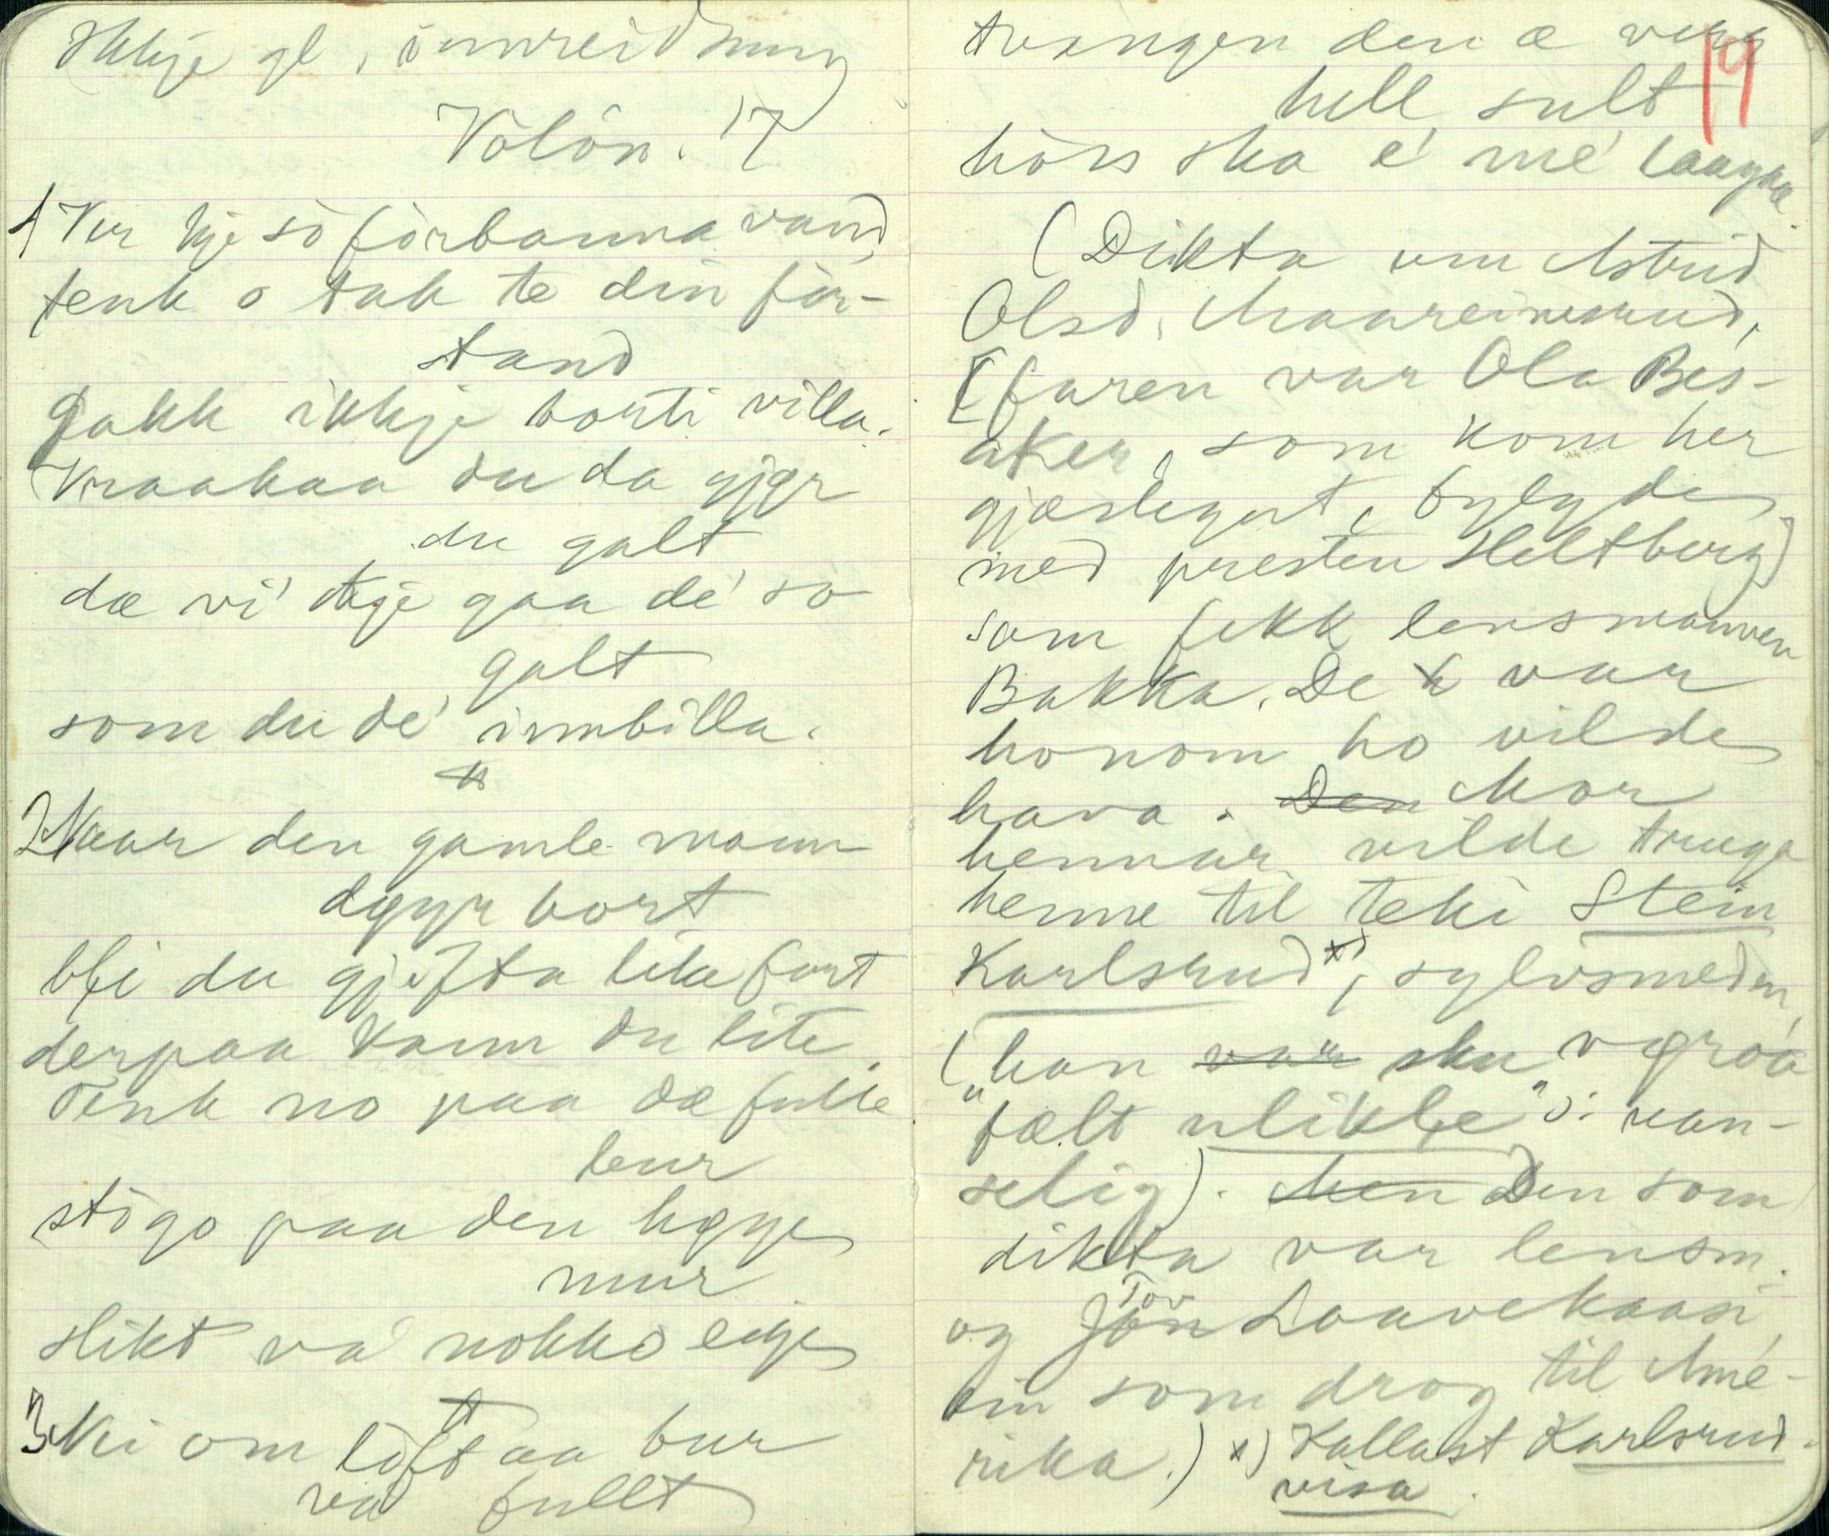 ikkje gl. innreidning
Völön. 17
1 Ver kje sò fòrbanna vand,
tenk o tak te din för-
stand
Gakk ikkje borti villa.
Kraakaa du da gjør
du galt
dæ vi' kje gaa de' so
galt
som du de' innbilla.
2 Naar den gamle mann
døyr bort
bli du gjifta like fort
derpaa kann du lite.
Tenk no paa dæ fulle
bur
stògo paa den høge
mur
slikt va' nokko eige
3 Nei om löft aa bur
va' fullt
19
trongen den æ verr
hell sult
hòss ska e' me' laagaa.
(Dikta um Astrid
Olsd. Maareinesrud,
[faren var Ola Bes-
aker, som kom her
gjæslegut, fylgde
med presten Heltberg]
som fekk lensmannen
Bakka. De var
honom ho vilde
hava. Den Mor
hennar vilde truga
henne til teki Stein
Karlsrud x), sylvsmeden,
(han var sku vøroa
"fælt ulikle" ɔ: van-
selig). Men Den som
dikta var lensm.
og Jon Tov Laavekaasi,
ein som drog til Ame-
rika.) x) Kallast Karlsrud-
visa.